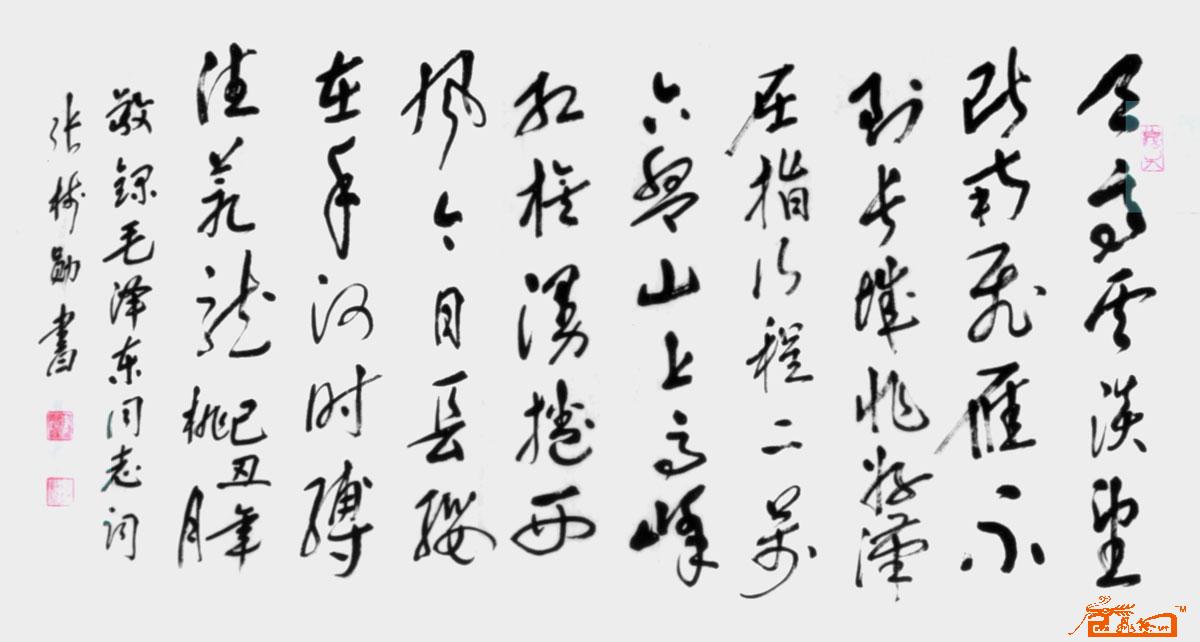 天高云淡望
断南飞雁不
到长城非好汉
屈指行程二万
六盘山上高峰
红旗漫捲西
风今日長缨
在手何时缚
住苍龙
己丑年
桃月
敬録毛泽东同志词
张树勋書